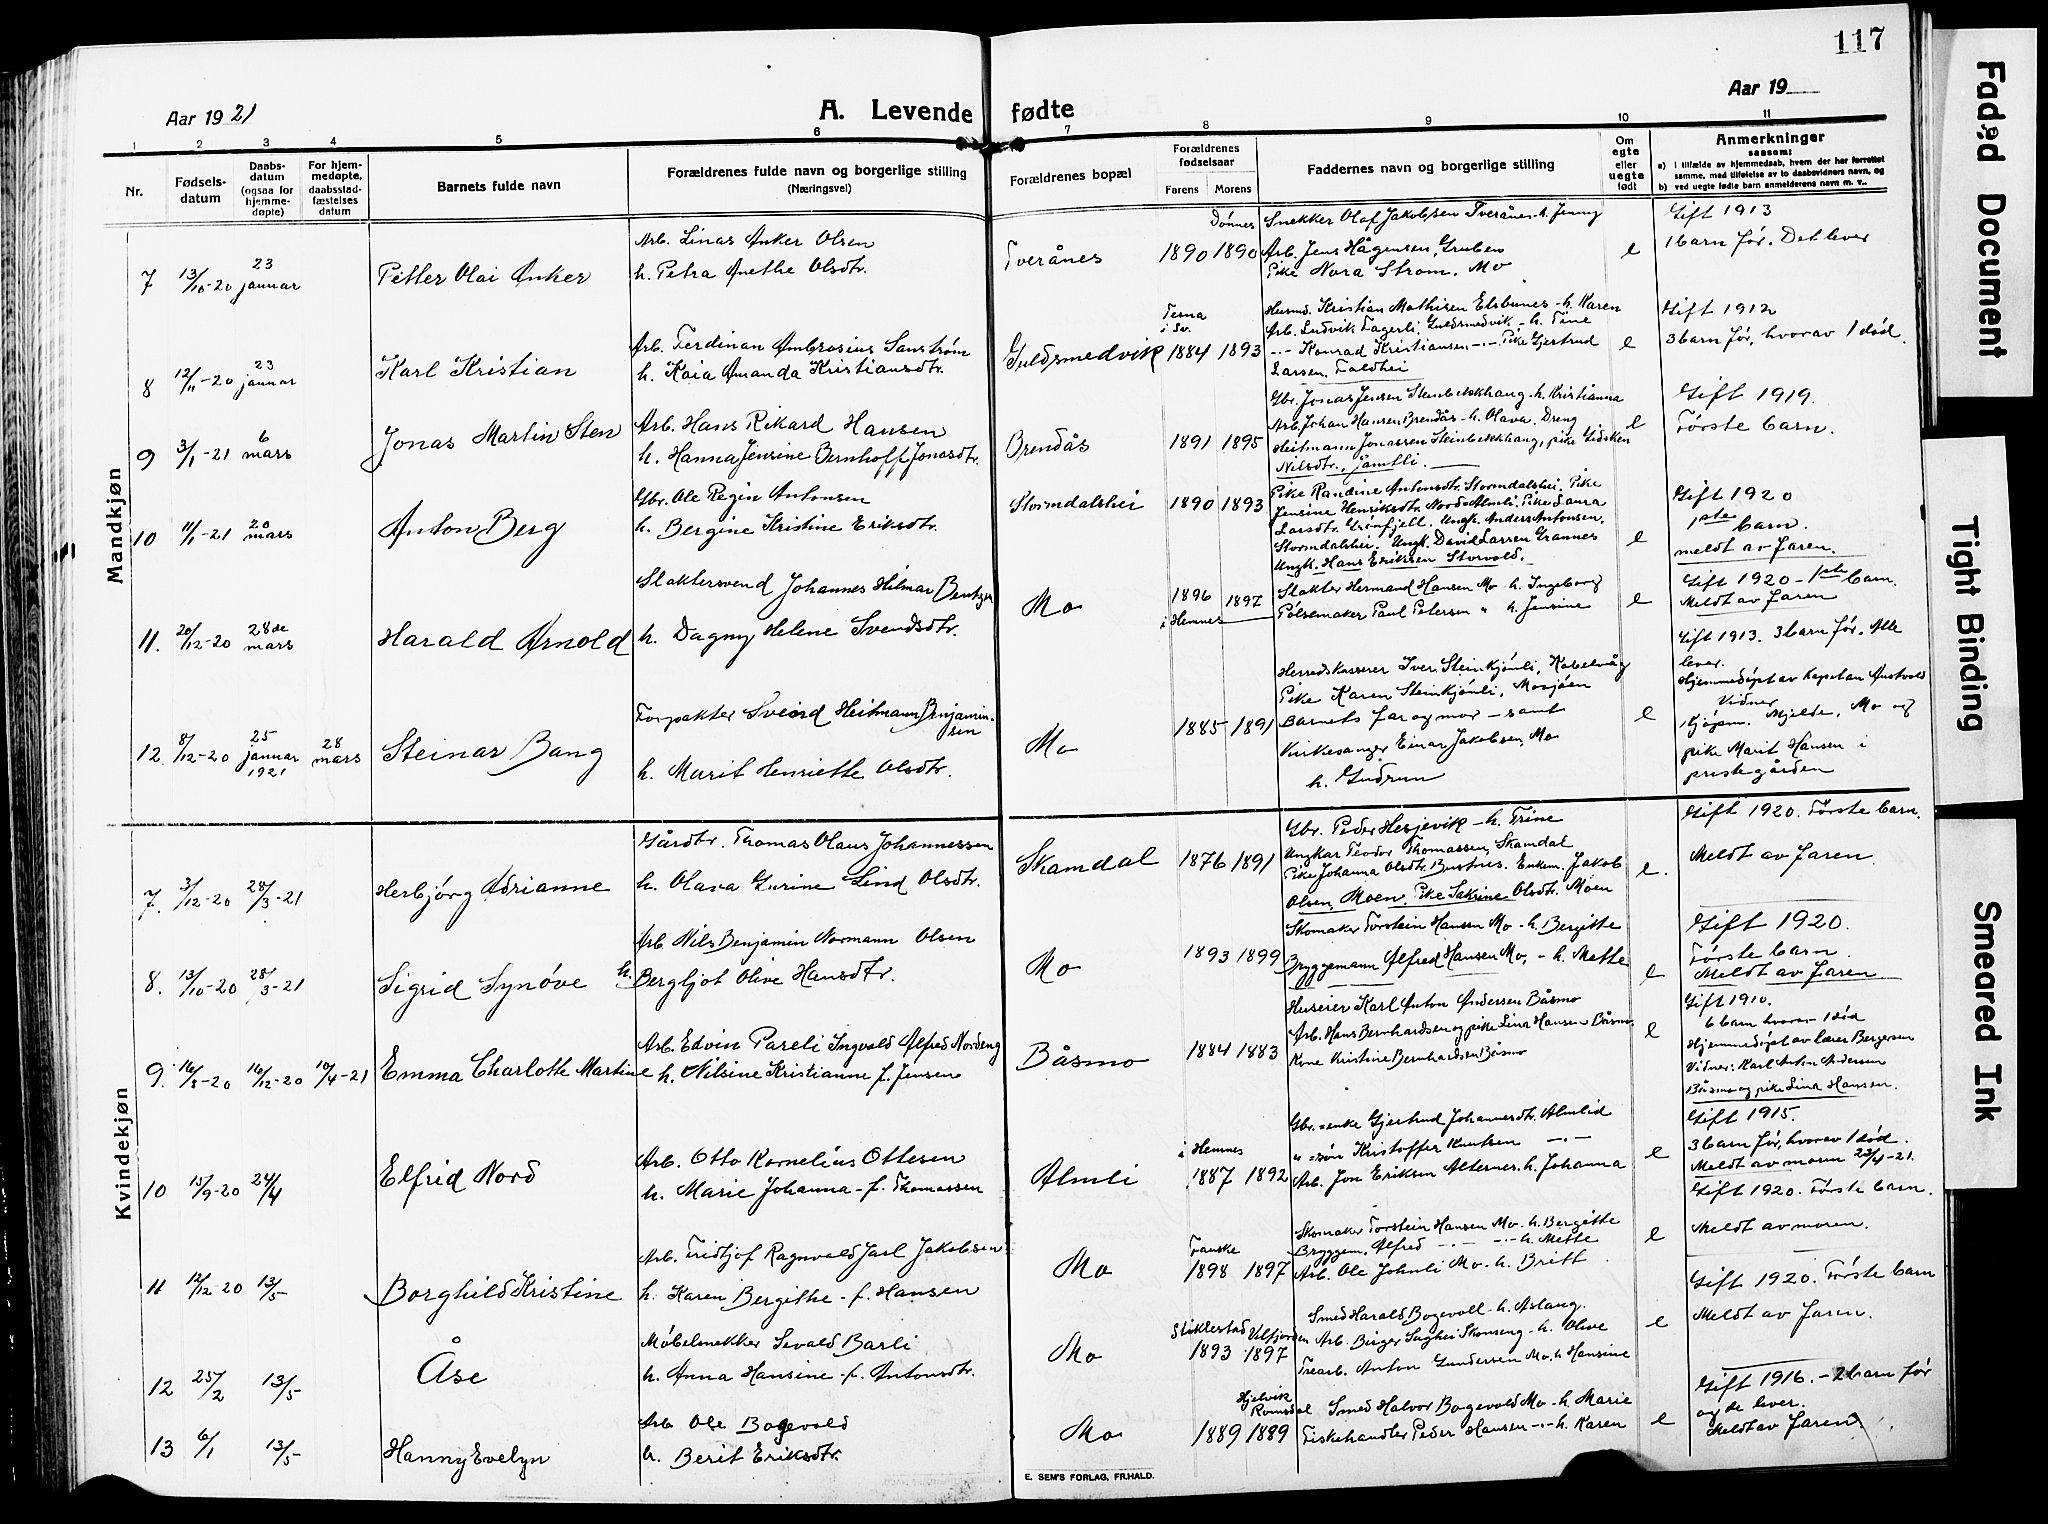 117
Aar 1921
A. Levende fødte
Aar 19
1 2 3 4 5 6 7 8 9 10 11
Nr.
Fødsels-
datum
Daabs-
datum
(ogsaa for
hjemme-
døpte)
For hjem-
medøpte,
daabsstad-
fæstelses
datum
Barnets fulde navn
Forældrenes fulde navn og borgerlige stilling
(Næringsvei)
Forældrenes bopæl
Forældrenes
fødselsaar
Farens Morens
Faddernes navn og borgerlige stilling
Om
egte
eller
uegte
født
Anmerkninger
saasom:
a) i tilfælde av hjemmedaab, hvem der har forrettet
samme, med tilføielse av to daabsvidners navn, og
b) ved uegte fødte barn anmelderens navn m. v..
Mandkjøn
7 13/10-20 23 januar
Petter Olai Anker
Arb. Linas Anker Olsen
h. Petra Anethe Olsdtr.
Tverånes
1890 Dønnes 1890
Snekker Olaf Jakobsen Tverånes - h. Jenny
Arb. Jens Hågensen, Gruben
Pike Nora Strøm, Mo
e
Gift 1913
1 barn før. Det lever
8 12/11-20 23 januar
Karl Kristian
Arb. Ferdinan Ambrosius Sanstrøm
h. Kaia Amanda Kristiansdtr.
Guldsmedvik
Terna
i Sv.
1884 1893
Husmd. Kristian Mathisen Elsbunes - h. Karen
Arb. Ludvik Fagerli, Guldsmedvik - h. Tine
-.- Konrad Kristiansen -.- Pike Gjertrud
Larsen,
e
Gift 1912
3 barn før, hvorav 1 død.
9 3/1-21 6 mars
Jonas Martin Sten
Arb. Hans Rikard Hansen
h. Hanna Jensine Bernhoff Jonasdtr.
Brendås
1891 1895
Gbr. Jonas Jensen Stenbekkhaug - h. Kristianna
Arb. Johan Hansen Brendås - h. Olava. Dreng
Heitmann Jonassen Steinbekkhaug, pike Lidsken
Nilsdtr., Jamtli.
e
Gift 1919.
Første barn.
10 11/1-21 20 mars
Anton Berg
Gbr. Ole Regin Antonsen
h. Bergine Kristine Eriksdtr.
Stormdalshei
1890 1893
Pike Randine Antonsdtr. Stormdalshei. Pike
Jensine Henriksdtr. Nord-Almli, Pike Laura
Larsdtr. Grønfjell. Ungk. Anders Antonsen,
Stormdalshei. Ungk. David Larsen Grannes
Ungk. Hans Eriksen Storvold.
e
Gift 1920
1ste barn.
meldt av faren.
11. 20/12-20 28de mars
Harald Arnold
Slaktersvend Johannes Hilmar Bentzen
h. Dagny Helene Svendsdtr.
Mo
1896 1897
i Hemnes
Slakter Hermand Hansen Mo - h. Ingeborg
Pølsemaker Paul Petersen " h. Jensine
e
Gift 1920 - 1ste barn.
Meldt av faren
12. 8/12-20 25 januar 1921 28 mars
Steinar Bang
Forpakter Sveind Heitmann Benjamin-
sen
h. Marit Henriette Olsdtr.
Mo
1885 1891
Herredskasserer Iver Steinkjønli, Kabelvåg
Pike Karen Steinkjønli, Mosjøen
Barnets far og mor - samt
Kirkesanger Einar Jakobsen, Mo
h. Gudrun
e
Gift 1913. 3 barn før. Alle
lever.
Hjemmedøpt av kapelan Austvold
Vidner
Mjelde, Mo og
pike Marit Hansen i
prestegården
Kvindekjøn
7. 3/12-20 28/3-21
Herbjørg Adrianne
Gårdbr. Thomas Olaus Johannessen
h. Olava Gurine Lind Olsdtr.
Skamdal
1876 1891
Gbr. Peder Hesjevik - h. Trine
Ungkar Teodor Thomassen, Skamdal
Pike Johanna Olsdtr. Bustnes. Enkem. Jakob
Olsen, Moen. Pike Sakrine Olsdtr. Moen
e.
Gift 1920. Første barn.
Meldt av faren.
8. 13/10-20 28/3-21
Sigrid Synøve
Arb. Nils Benjamin Normann Olsen
h. Bergljot Olive Hansdtr.
Mo
1893 1899
Skomaker Torstein Hansen Mo - h. Bergitte
Bryggemann Alfred Hansen Mo, - h. Mette
e
Gift 1920.
Første barn.
Meldt av faren
9. 16/8-20 16/12-20 10/4-21
Emma Charlotte Martine
Arb. Edvin Pareli Ingvald Alfred Nordeng
h. Nilsine Kristianne f. Jensen
Båsmo
1884 1883
Huseier Karl Anton Andersen Båsmo
Arb. Hans Bernhardsen og pike Lina Hansen Båsmo
Kone Kristine Bernhardsen Båsmo
e
Gift 1910.
6 barn hvorav 1 død
Hjemmedøpt av lærer Bergersen
Vidner: Karl Anton Andersen
Båsmo og pike Lina Hansen.
10 15/9-20 24/4
Elfrid Nord
Arb. Otto Kornelius Ottesen
h. Marie Johanna - f. Thomassen
Almli
i Hemnes
1887 1892
Gbr.=enke Gjertrud Johannesdtr. Almlid
" =søn Kristoffer Knutsen -.-
Arb. Jon Eriksen Alternes. h. Johanna
e
Gift 1915.
3 barn før, hvorav 1 død.
Meldt av moren 23/4-21.
11 12/12-20 13/5
Borghild Kristine
Arb. Fridtjof Ragnvald Jarl Jakobsen
h. Karen Bergithe - f. Hansen
Mo
Fauske
1898 1897
Skomaker Torstein Hansen Mo - h. Bergitte
Bryggem. Alfred -.- -.- h. Mette
Arb. Ole Johnli Mo - h. Britt
e
Gift 1920. Første barn.
Meldt av moren.
12 25/2 13/5
Åse
Møbelsnekker Sevald Barli
h. Anna Hansine - f. Antonsdtr.
Mo
Stiklestad Velfjorden
1893 1897
Smed Harald Bogevoll - h. Aslaug.
Arb. Birger Skonseng - h. Olive
Trearb. Anton Gundersen Mo. h. Hansine
e
Gift 1920. Første barn
Meldt av faren.
13 6/1 13/5
Hanny Evelyn
Arb. Ole Bogevold
h. Berit Eriksdtr.
Mo
Hjelvik
Romsdal
1889 1889
Smed Halvor Bogevold Mo - h. Marie
Fiskehandler Peder Hansen -.- h. Karen
e
Gift 1916. - 2 barn før
og de lever.
Meldt av faren.
E. SEM'S FORLAG, FR.HALD.
Faded Document
Tight Binding
Smeared Ink